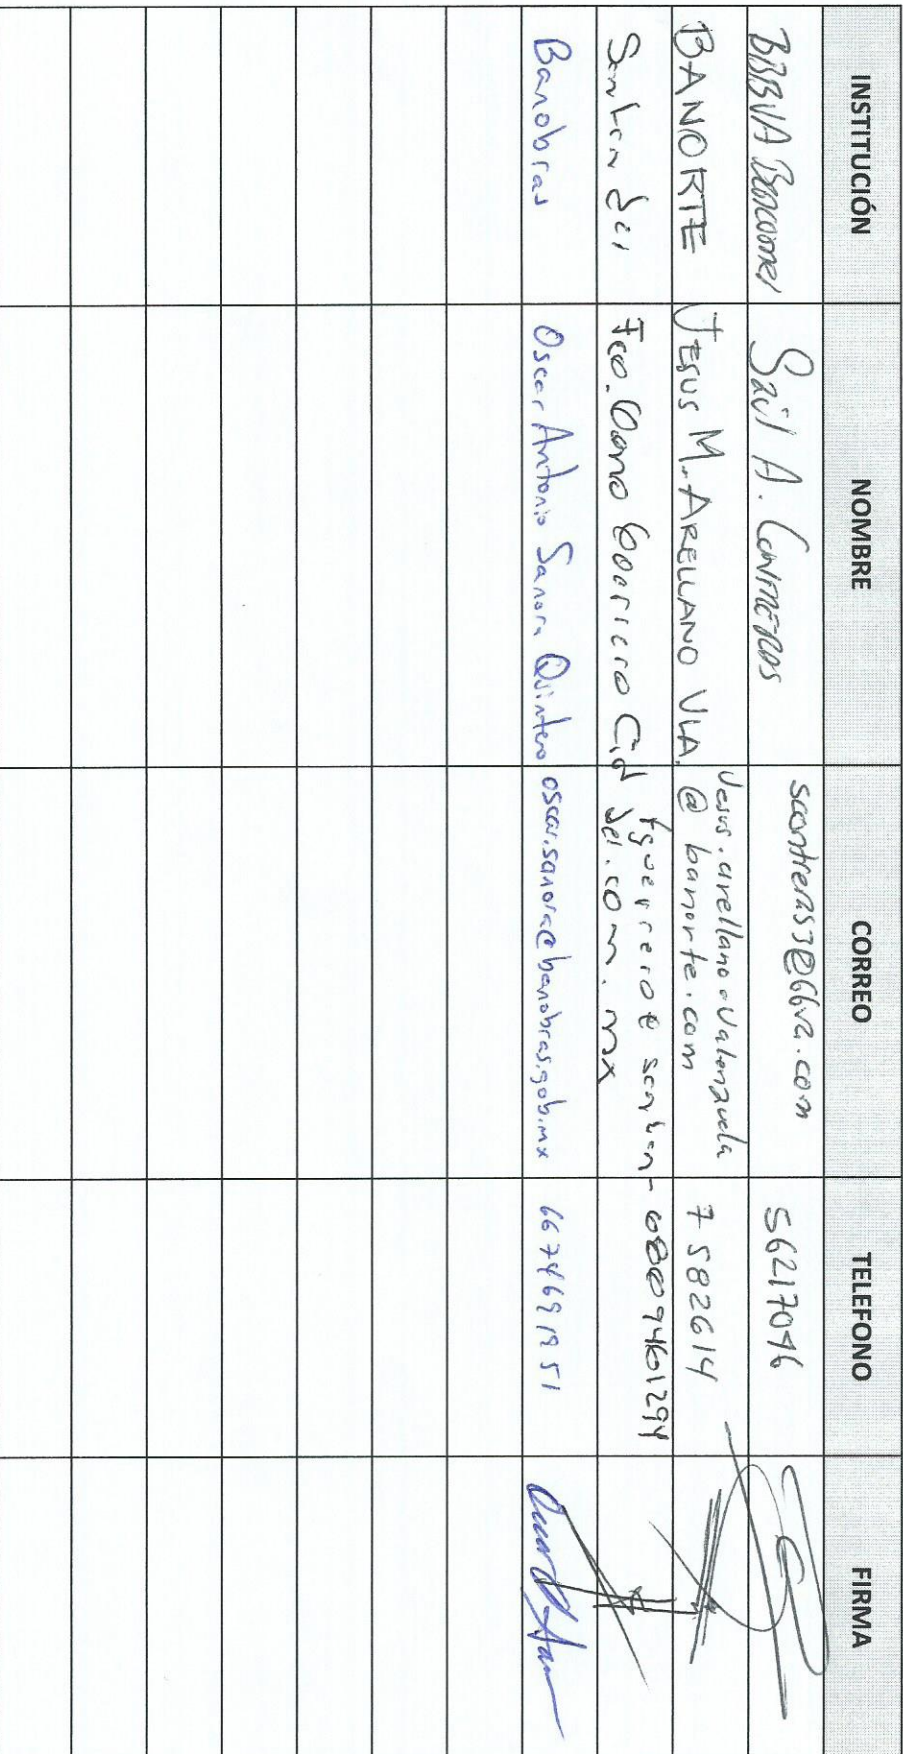 INSTITUCIÓN NOMBRE CORREO TELEFONO FIRMA
BBBVA Bancomer Saúl A. Contreras scontreras3@bbva.com 56217096
BANORTE Jesus M. Arellano Vla. Jesus.arellano.valenzuela
@banorte.com 7582614
Santander Fco. Guerrero Cid fguerrero@santan-
der.com.mx
Banobras Oscar Antonio Sanora Quintero oscar.sanora@banobras.gob.mx